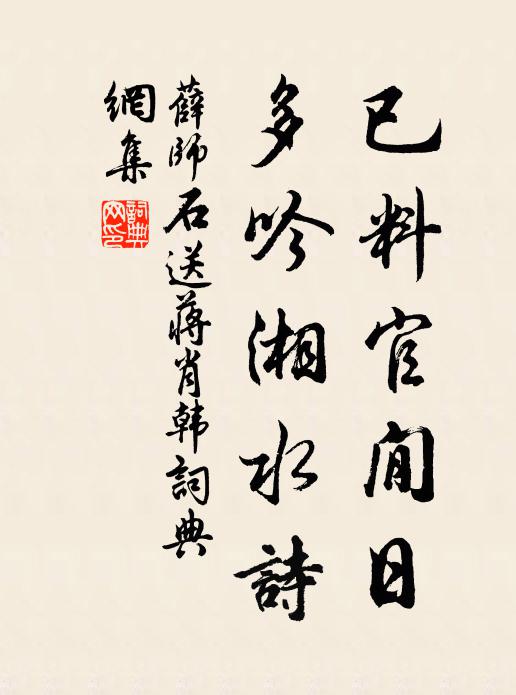 已料官閒日
多吟湘水詩
薛師石送蔣肖韩詞典
網集
詞典
网印